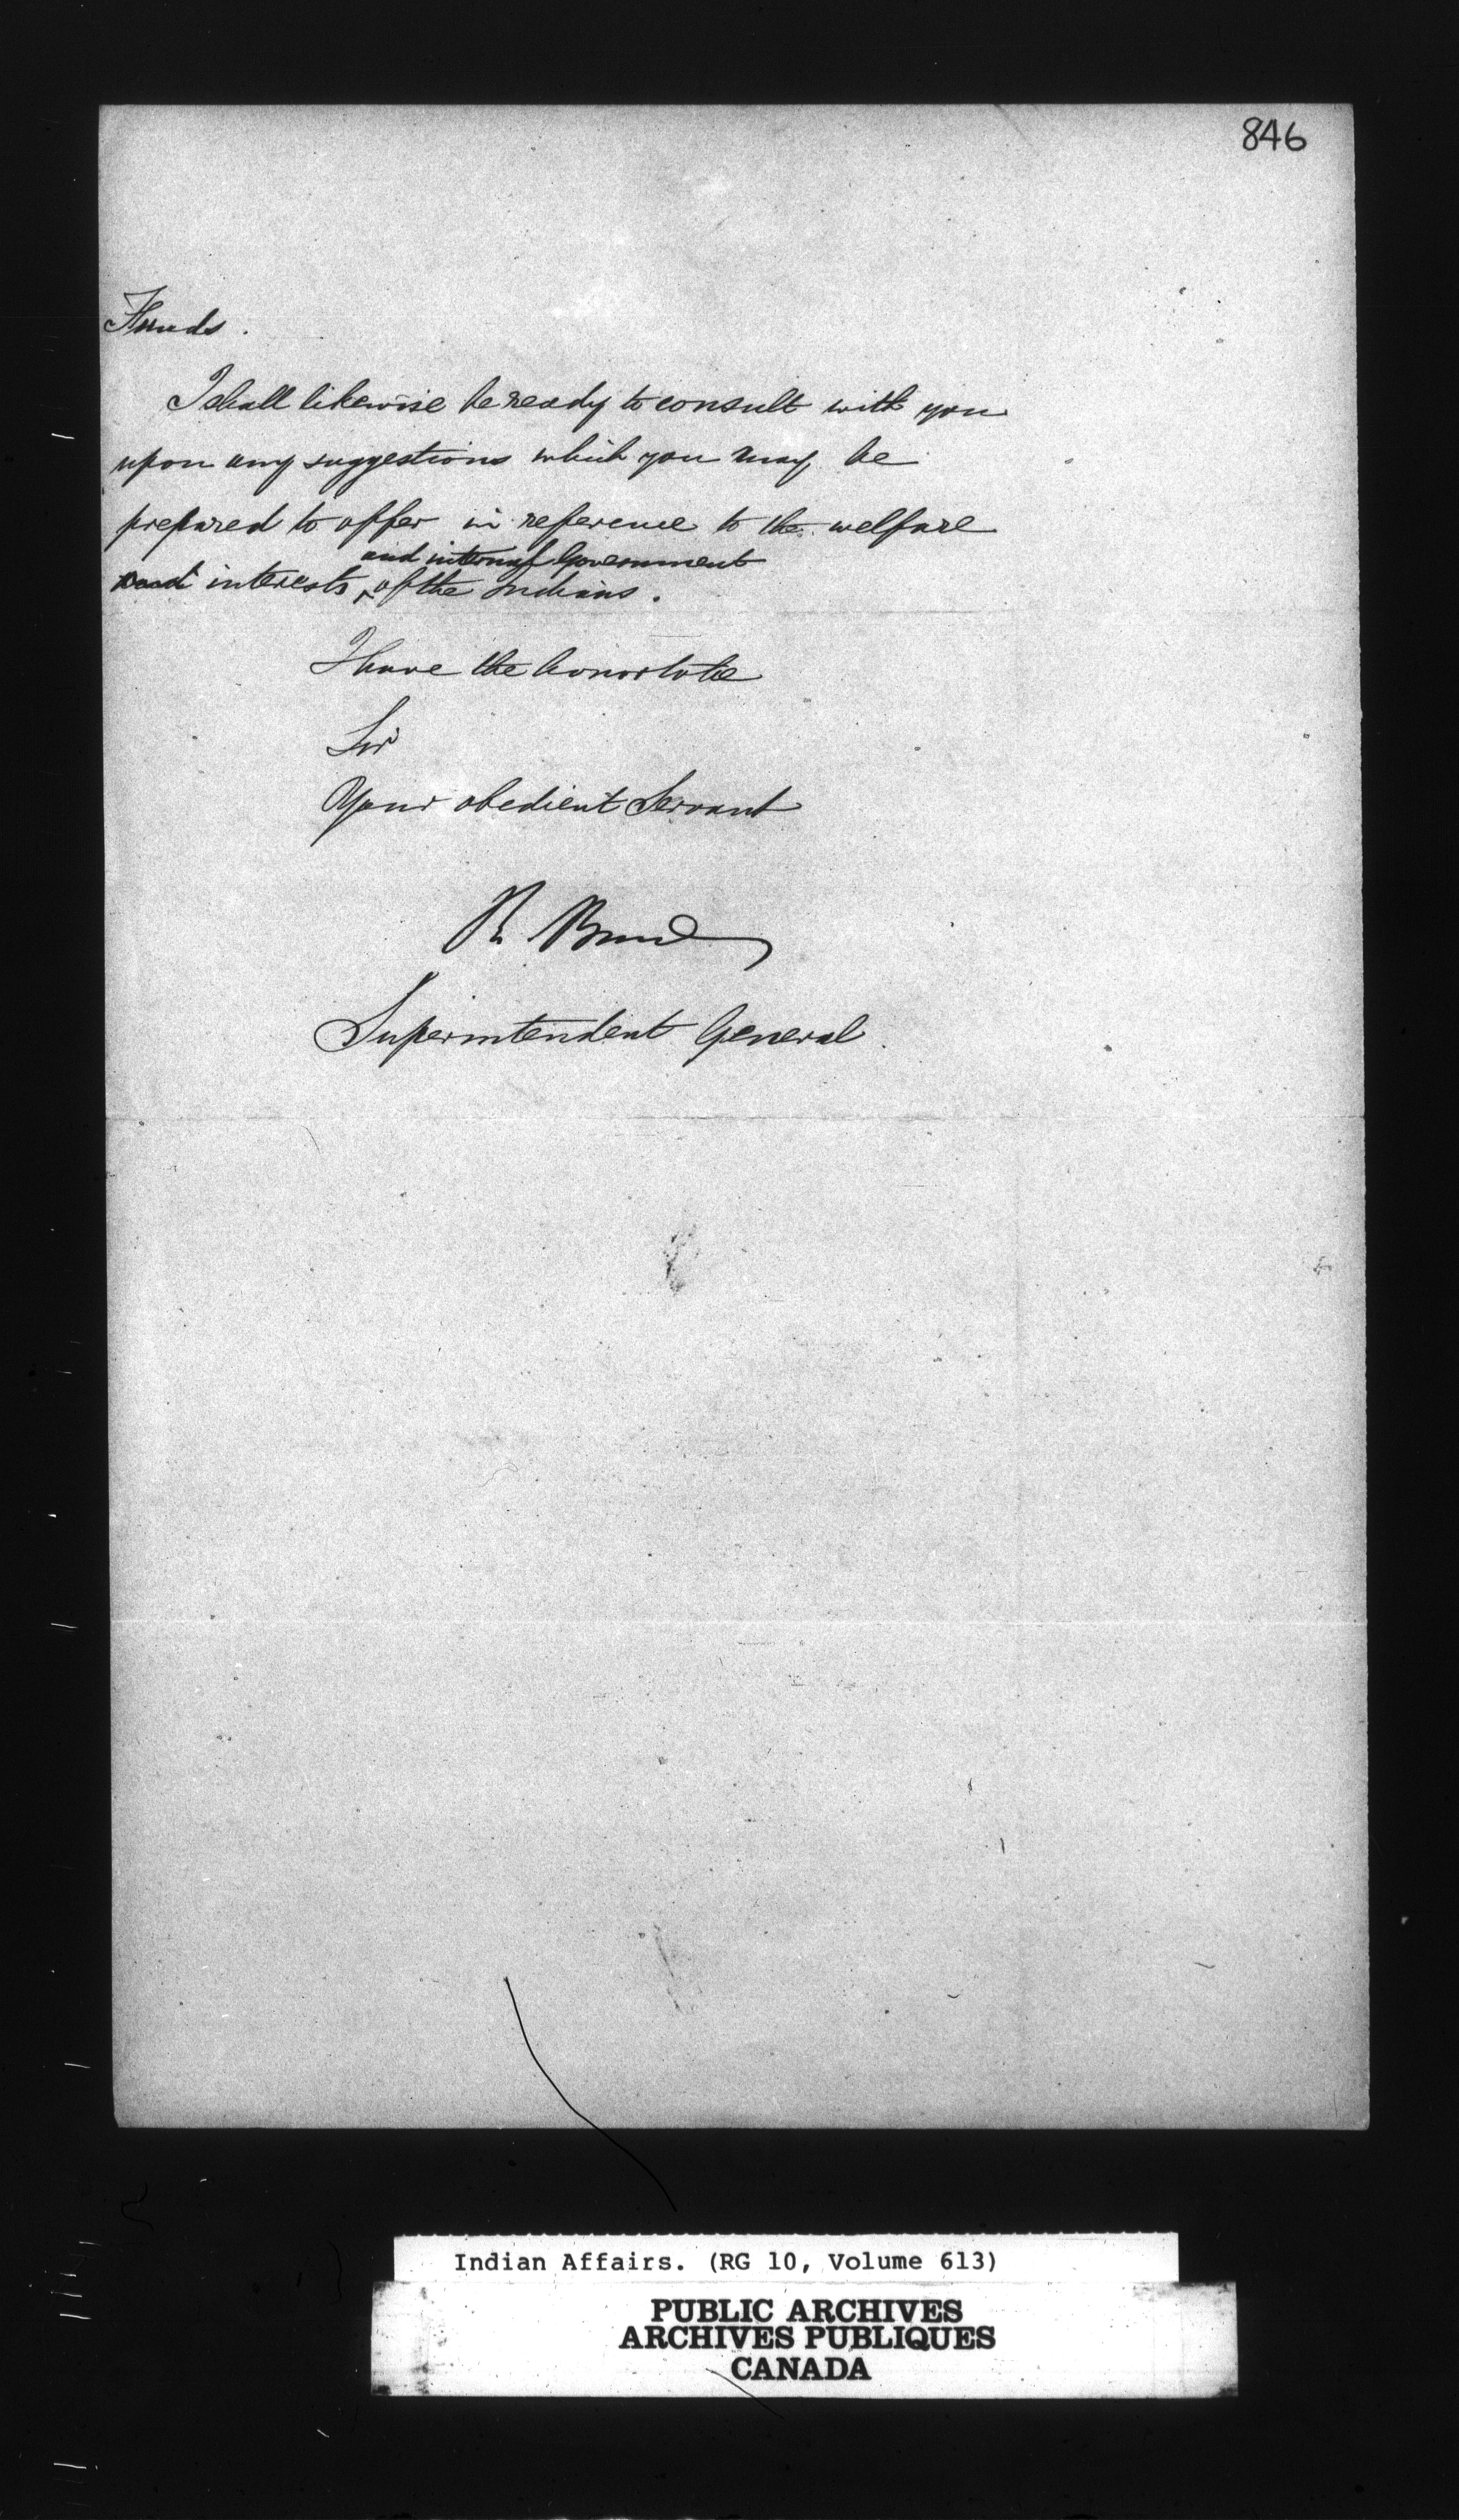 846
Funds.
I shall likewise be ready to consult with you
upon any suggestions which you may be
prepared to offer in reference to the welfare
and internal Government
interests ‸ of the Indians.
I have the honor to be
Sir
Your obedient Servant
R. Bruce
Superintendent General.
Indian Affairs. (RG 10, Volume 613)
PUBLIC ARCHIVES
ARCHIVES PUBLIQUES
CANADA